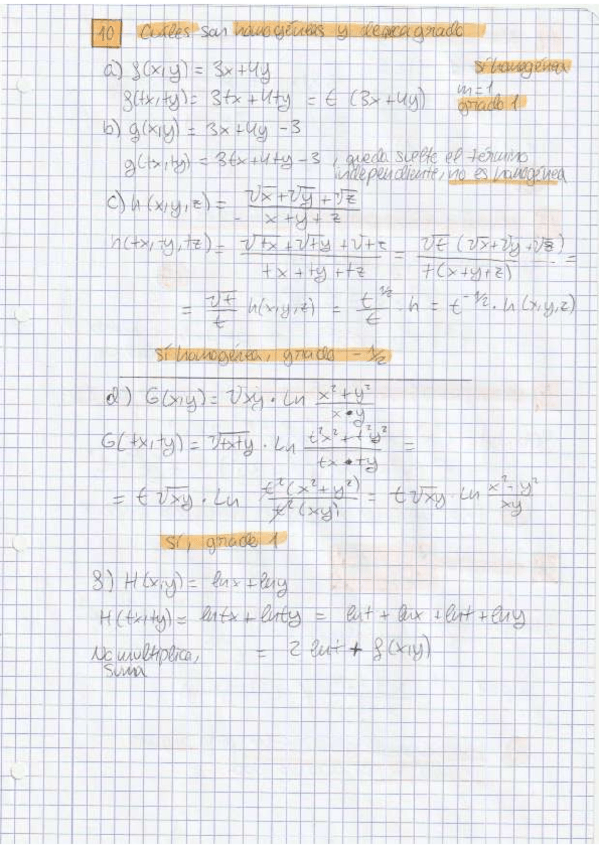 10 Cuáles son homogéneas y de qué grado
a) f(x,y) = 3x+4y
sí homogénea
m=1
grado 1
f(tx,ty) = 3tx+4ty = t (3x+4y)
b) g(x,y) = 3x+4y-3
g(tx,ty) = 3tx+4ty-3, queda suelto el término
independiente, no es homogénea
c) h(x,y,z) = (√x+√y+√z)/(x+y+z)
h(tx,ty,tz) = (√tx+√ty+√tz)/(tx+ty+tz) = (√t (√x+√y+√z))/(t(x+y+z)) =
= √t/t h(x,y,z) = t^1/2/t · h = t^-1/2 · h(x,y,z)
sí homogénea, grado -1/2
d) G(x,y) = √xy · Ln (x²+y²)/(x·y)
G(tx,ty) = √txty · Ln (t²x²+t²y²)/(tx·ty) =
= t√xy · Ln (t²(x²+y²))/(t²(xy)) = t√xy · Ln (x²-y²)/(xy)
sí, grado 1
f) H(x,y) = lnx+lny
H(tx,ty) = lntx+lnty = lnt+lnx+lnt+lny
No multiplica,
suma
= 2 lnt + f(x,y)